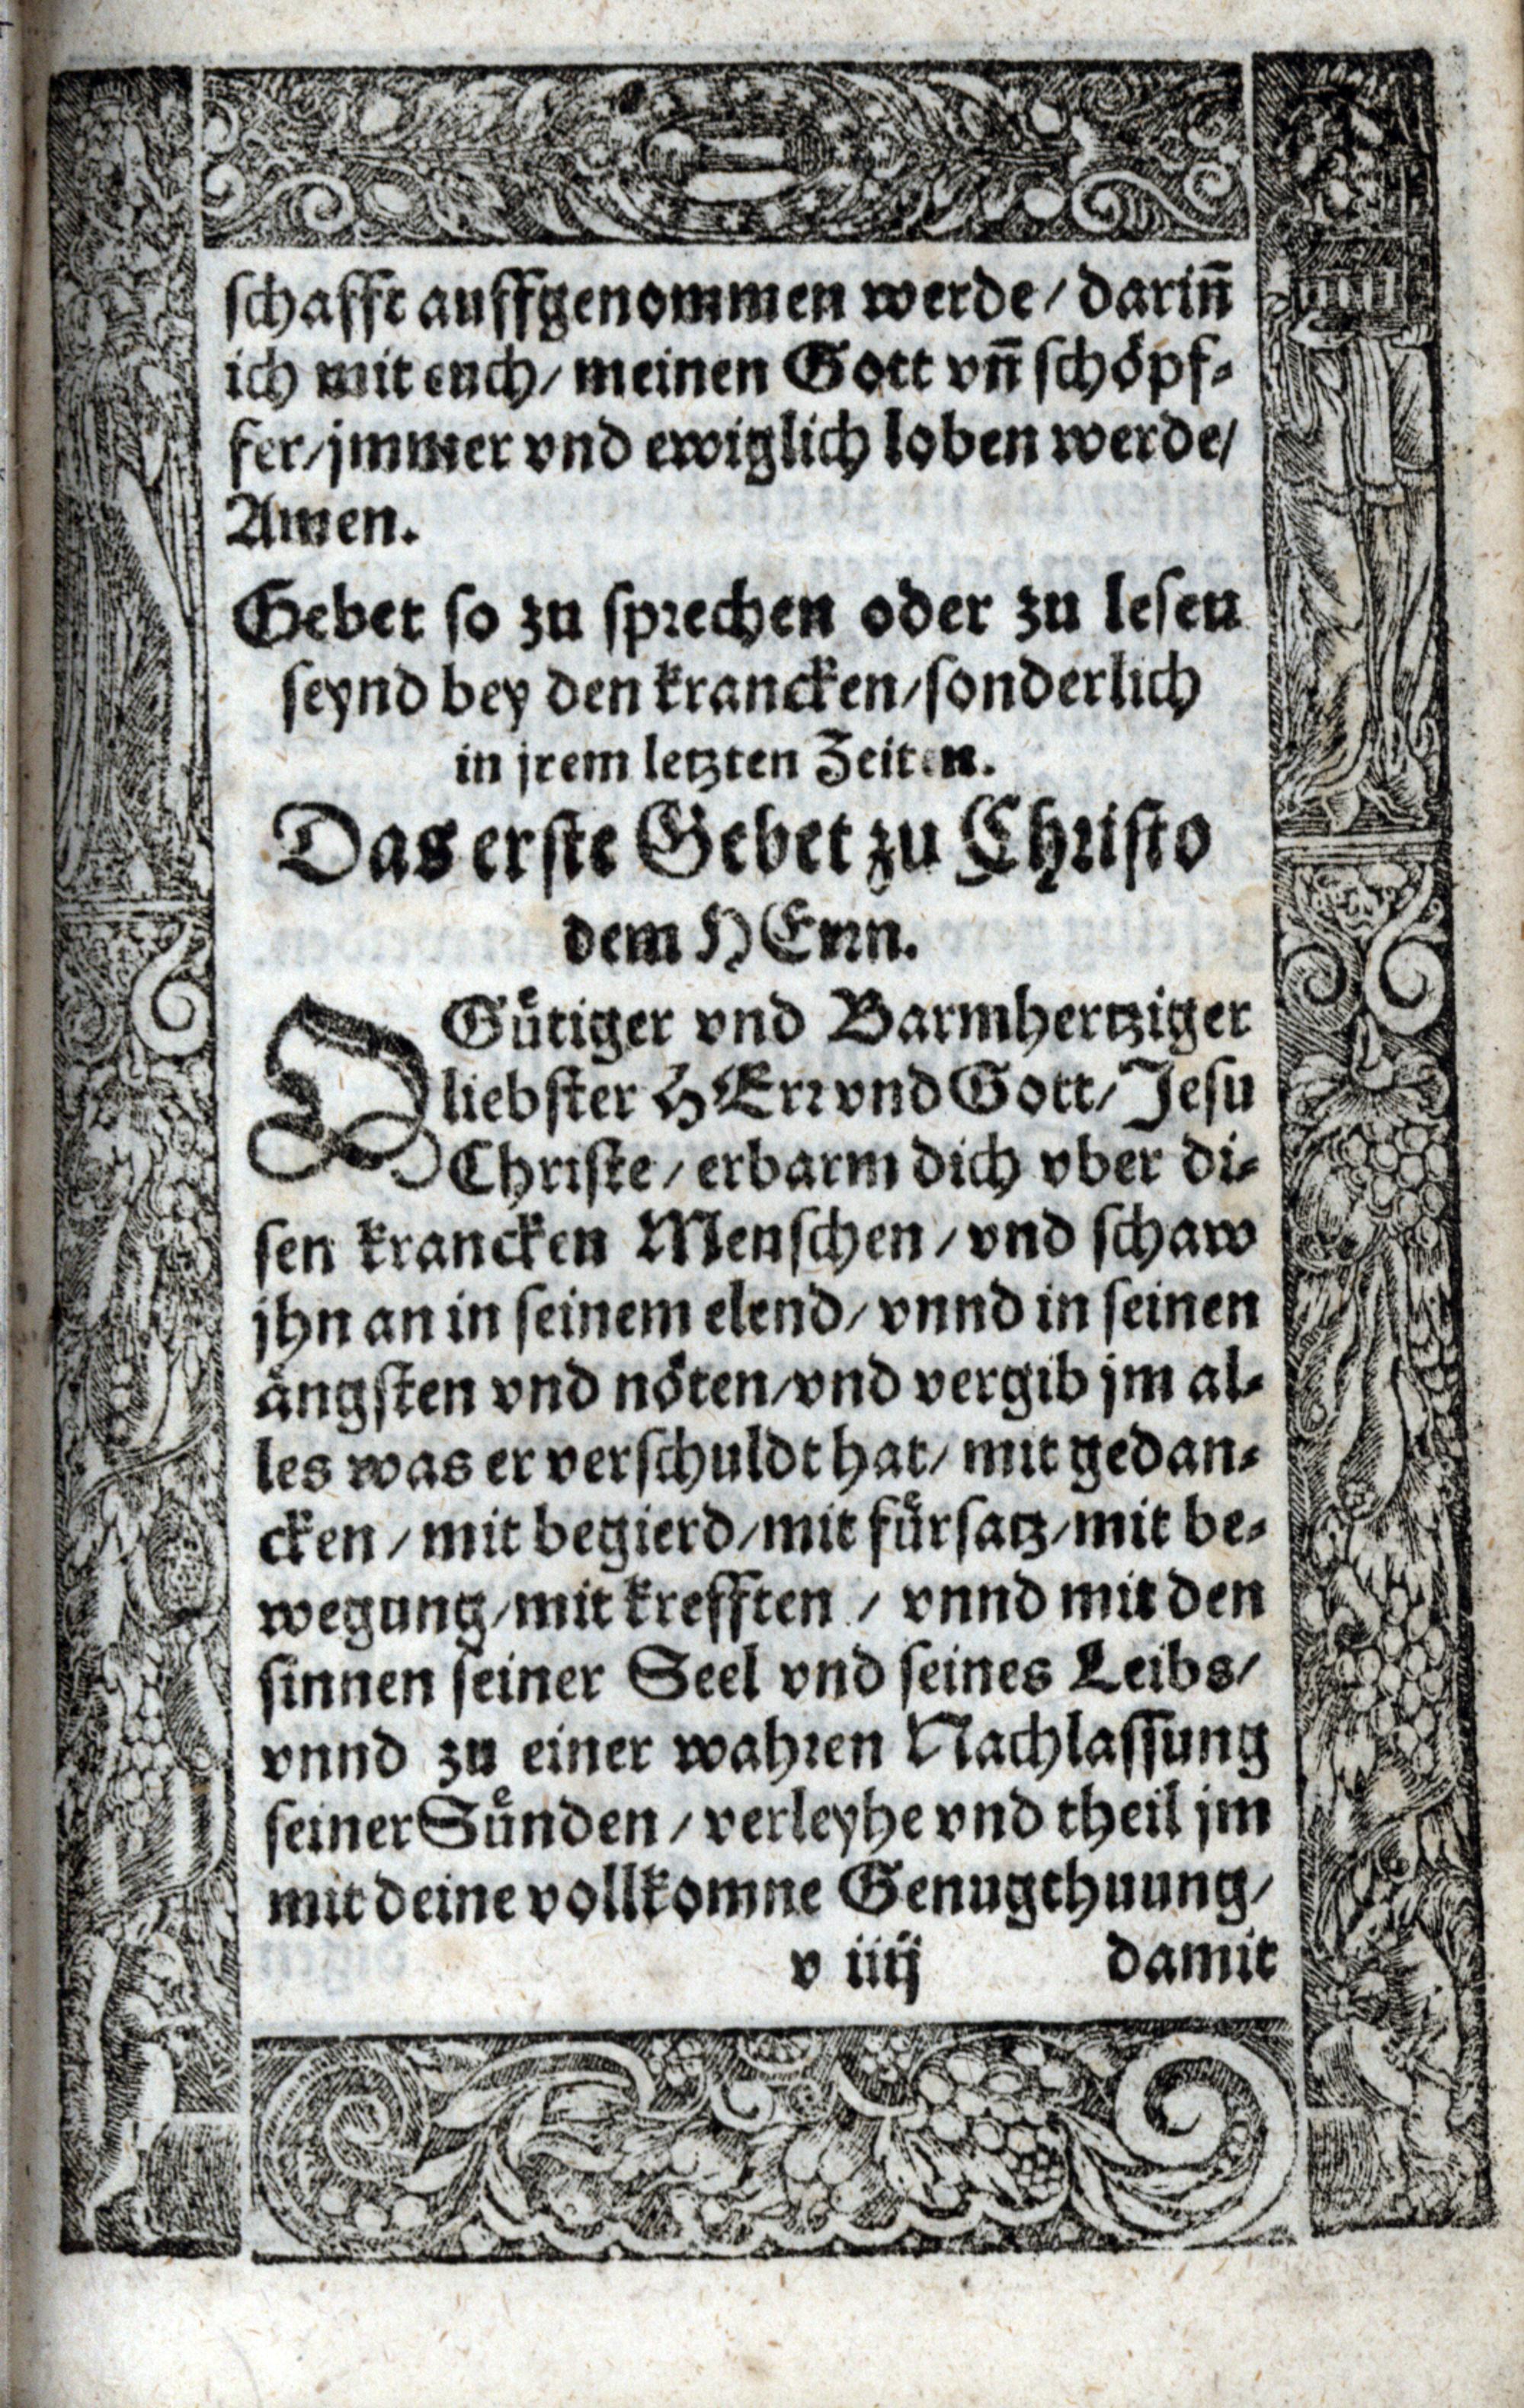 schafft auffgenommen werde / darinn̄
ich mit euch / meinen Gott vn̄ schöpf-
fer / jmmer vnd ewiglich loben werde /
Amen.
Gebet so zu sprechen oder zu lesen
seynd bey den krancken / sonderlich
in jrem letzten Zeiten.
Das erste Gebet zu Christo
dem HErrn.
O Gütiger vnd Barmhertziger
liebster HErr vnd Gott / Jesu
Christe / erbarm dich vber di-
sen krancken Menschen / vnd schaw
jhn an in seinem elend / vnnd in seinen
ängsten vnd nöten / vnd vergib jm al-
les was er verschuldt hat / mit gedan-
cken / mit begierd / mit fürsatz / mit be-
wegung / mit krefften / vnnd mit den
sinnen seiner Seel vnd seines Leibs /
vnnd zu einer wahren Nachlassung
seiner Sünden / verleyhe vnd theil jm
mit deine vollkomne Genugthuung /
v iiij damit